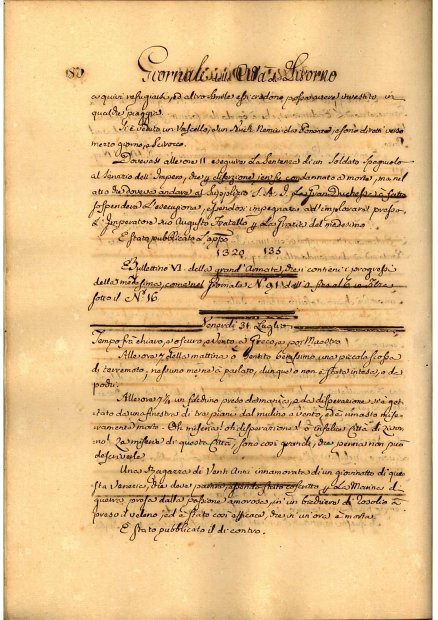 Giornale della Città di Livorno
a quivi refugiati, ed altro simile
qualche piaggia.
Si è veduto un Vascello, e un Brick
mezzo giorno, e Scirocco.
Dovevasi alle ore 11 eseguire La Sentenza di un Soldato Spagnuolo
al Servizio dell' Impero, che condannato a morte, ma nel
atto che doveva andare al Supplizio S. A. I. La Gran Duchessa à fatto
sospendere L'esecuzione, essendosi impegnata ad implorare presso
L'Imperatore Suo Augusto Fratello La Grazia del medesimo.
È Stato pubblicato
1320 135
Bullettino VI. della grand' Armata, che contiene i progressi
della medesima, come nel Giornale N. 91 dell'
sotto il N. 16
Venerdì 31. Luglio
Tempo frà chiaro, e oscuro, e vento a Greco, e poi Maestro
Alle ore 7 della mattina s'è sentito benissimo, una piccola scossa
di terremoto, nessuno me ne à parlato, dunque o non è stata intesa, o da
pochi.
Alle ore 7¼ un facchino preso da mania, e da disperazione si è get-
tato da una finestra di tre piani dal mulino a vento, ed è rimasto mise-
ramente morto. Oh miseria! oh disperazione! o infelice Città di Livor-
no! La miseria di questa Città, sono così grandi, che penna non può
descriverle.
Una Ragazza di Vent'Anni innamorata di un giovinotto di que-
sta Venezia, che deve partire, essendo stato coscritto La Marina di
guerra presa dalla passione amorosa, in un bicchiere di rosolio à
preso il veleno, ed è stato così efficace, che in un'ora è morta.
È Stato pubblicato il di contro.